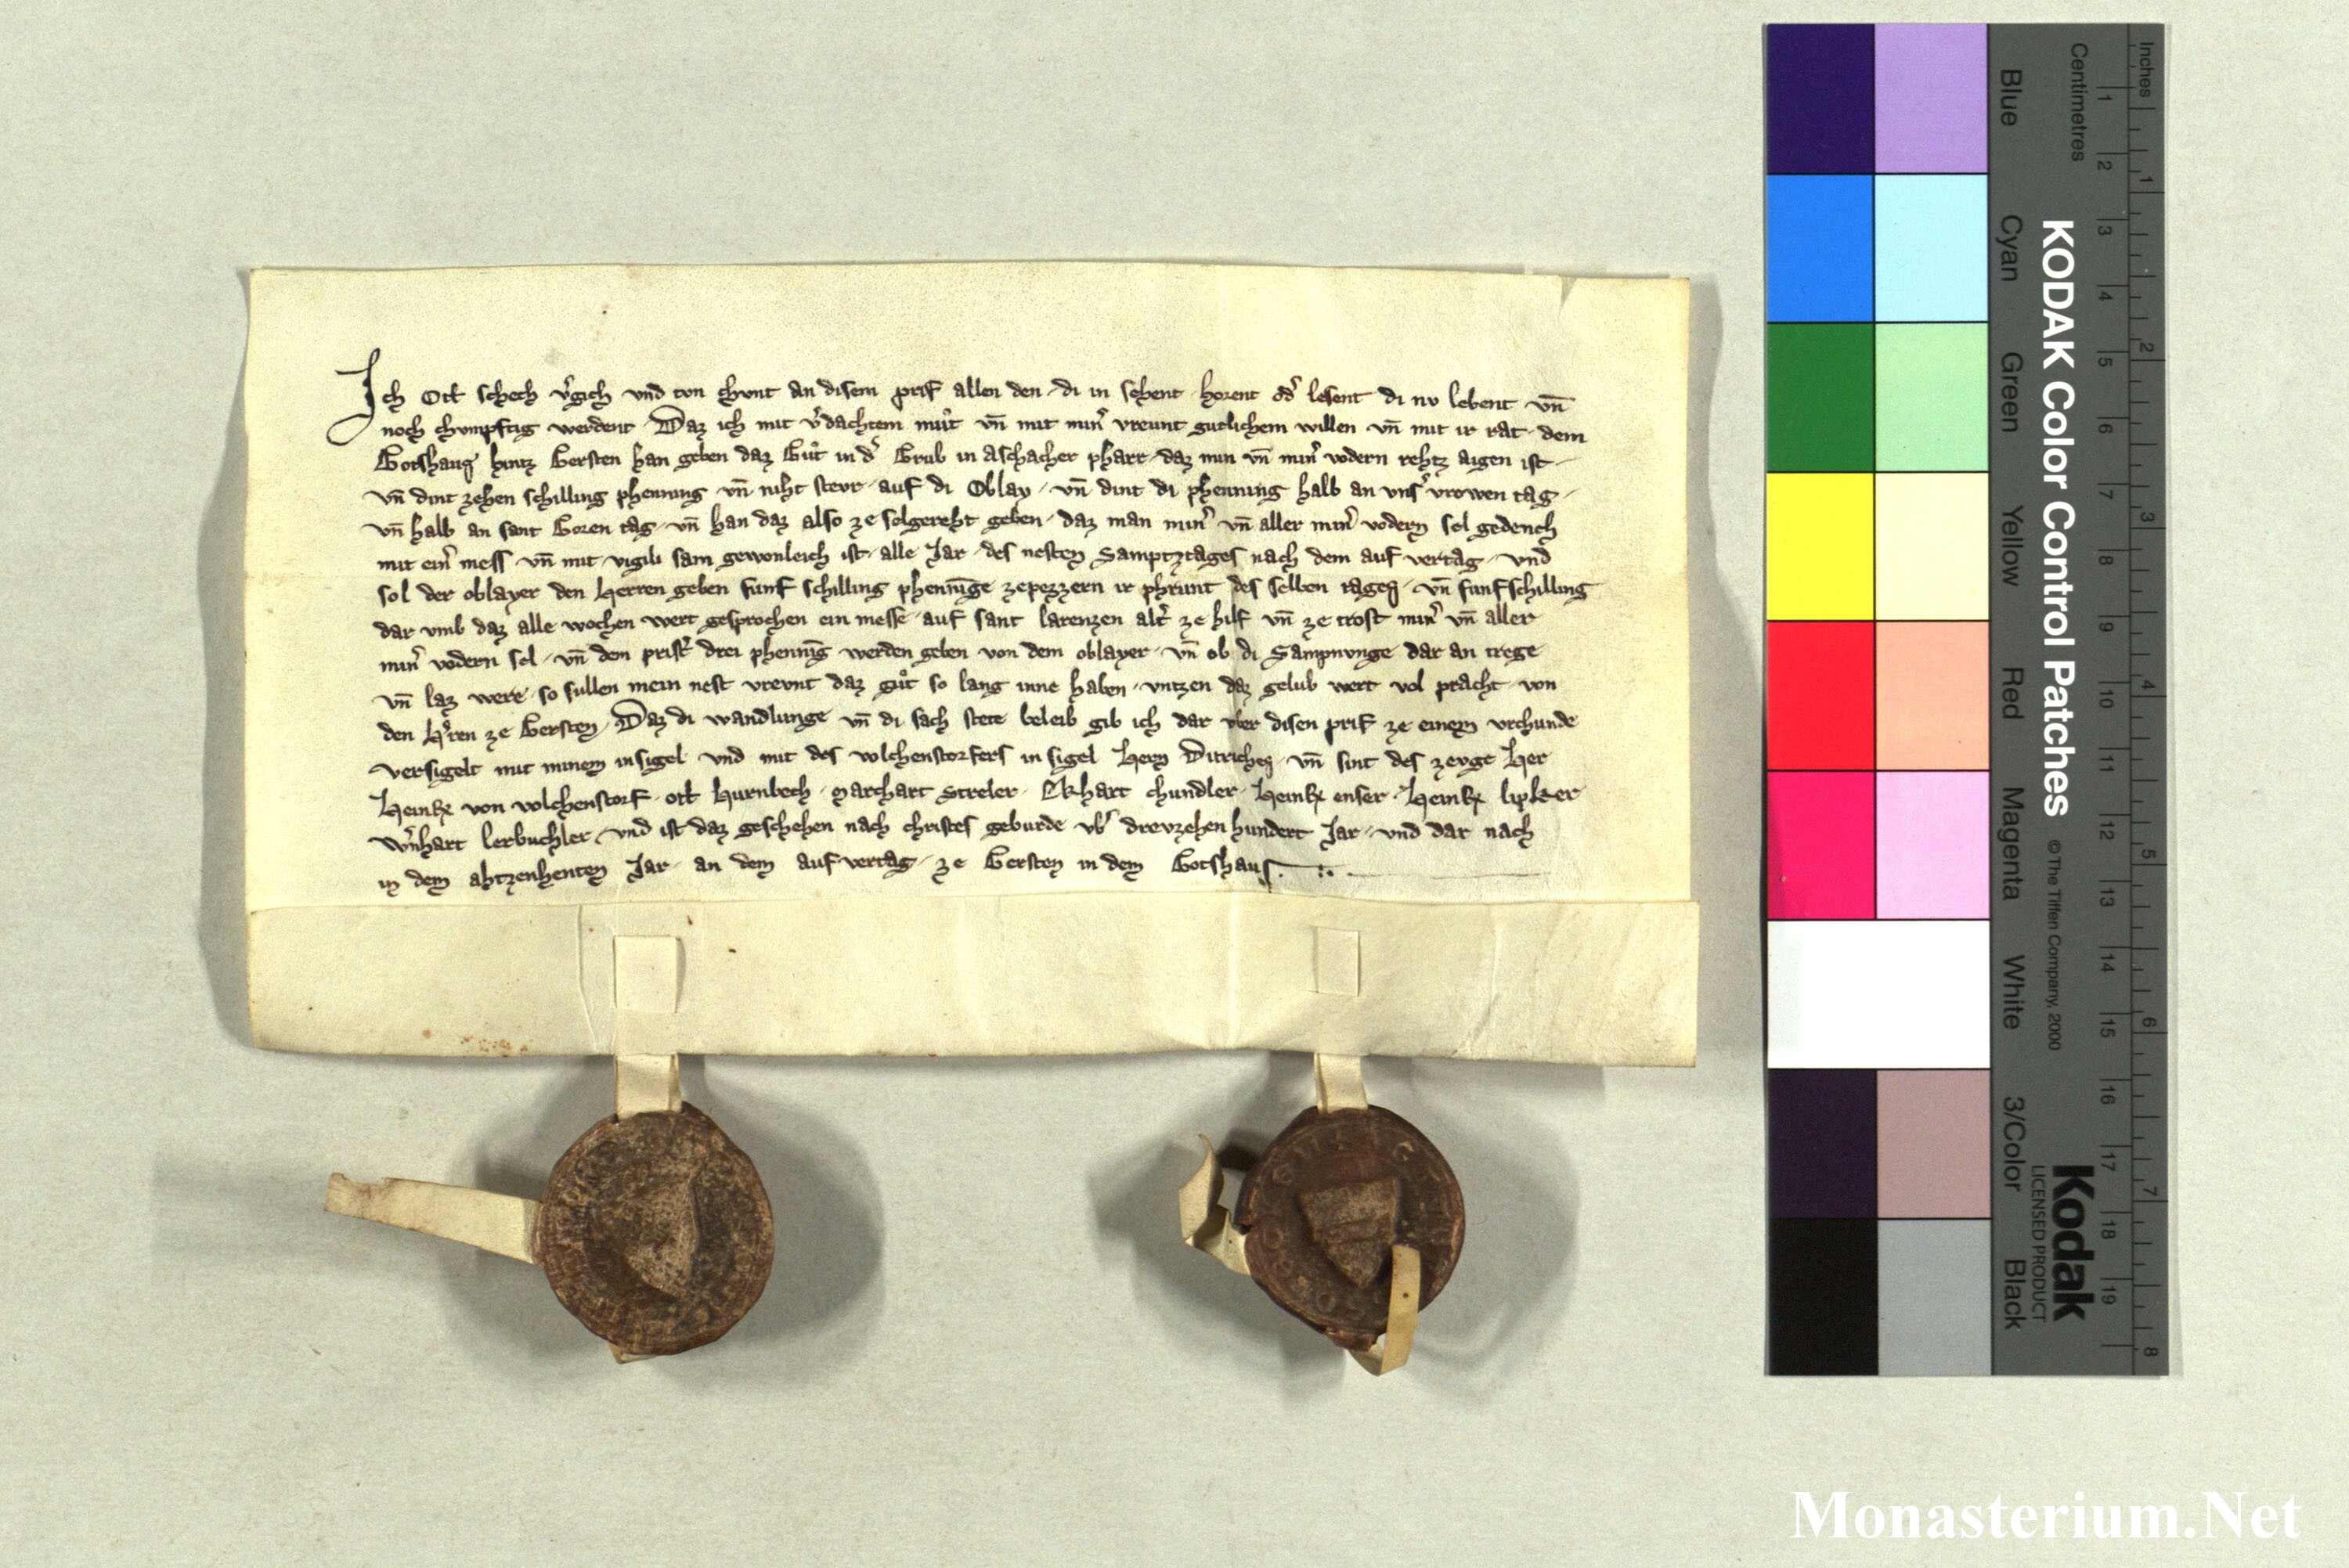 Ich Ott schech v̉gich vnd ton chvnt an disem prif allen den di in sehent horent od̉ lesent di nv lebent vn̄
noch chvmpftig werdent Daz ich mit v̉dachtem mův̊t vn̄ mit min̉ vreunt gutlichem willen vn̄ mit ir rat dem
Gotshaus hintz Gersten han geben daz Gůt in d̉ Grub in Aschacher pharr daz min vn̄ min̉ vodern rehtz aigen ist
vn̄ dint zehen schilling phenning vn̄ niht stevr auf di Oblay vn̄ dint di phenning halb an vns̉ vrowen tag
vn̄ halb an sant Goren tag vn̄ han daz also ze selgereht geben daz man min̉ vn̄ aller min̉ vodern sel gedench
mit ein̉ mess vn̄ mit vigili sam gewonleich ist alle Jar des nesten Samptztages nach dem auf vertag vnd
sol der oblayer den Herren geben funf schilling phenni̅ge ze pezzern ir phrunt des selben tages vn̄ funf schilling
dar vmb daz alle wochen wert gesprochen ein messe auf sant larenzen alt̉ ze hilf vn̄ ze trost min̉ vn̄ aller
min̉ vodern sel vn̄ dem prist̉ drei phenni̅g werden geben von dem oblayer vn̄ ob di Sampnvnge dar an trege
vn̄ laz were so sullen mein nest vrevnt daz gůt so lang inne haben vntzen daz gelub wert vol pracht von
den H̉ren ze Gersten Daz di wandlunge vn̄ di sach stete beleib gib ich dar vber disen prif ze einem vrchunde
versigelt mit minem insigel vnd mit des volchenstorfers in sigel Hern Ditriches vn̄ sint des zevge Her
Heinr̄ von volchenstorf ott hurnbech Marchart Streler Ekhart chundler Heinr̄ enser Heinr̄
w̉nhart lerbuchler vnd ist daz geschehen nach christes geburde vb̉ drevzehen hundert Jar vnd dar nach
in dem ahtzenhenten Jar an dem auf vertag ze Gersten in dem Gotshaus
Inches
Centimetres
1 2 3 4 5 6 7 8 9 10 11 12 13 14 15 16 17 18 19
1 2 3 4 5 6 7 8
Blue Cyan Green Yellow Red Magenta White 3/Color Black
KODAK Color Control Patches © The Tiffen Company, 2000
Kodak
LICENSED PRODUCT
Monasterium.Net